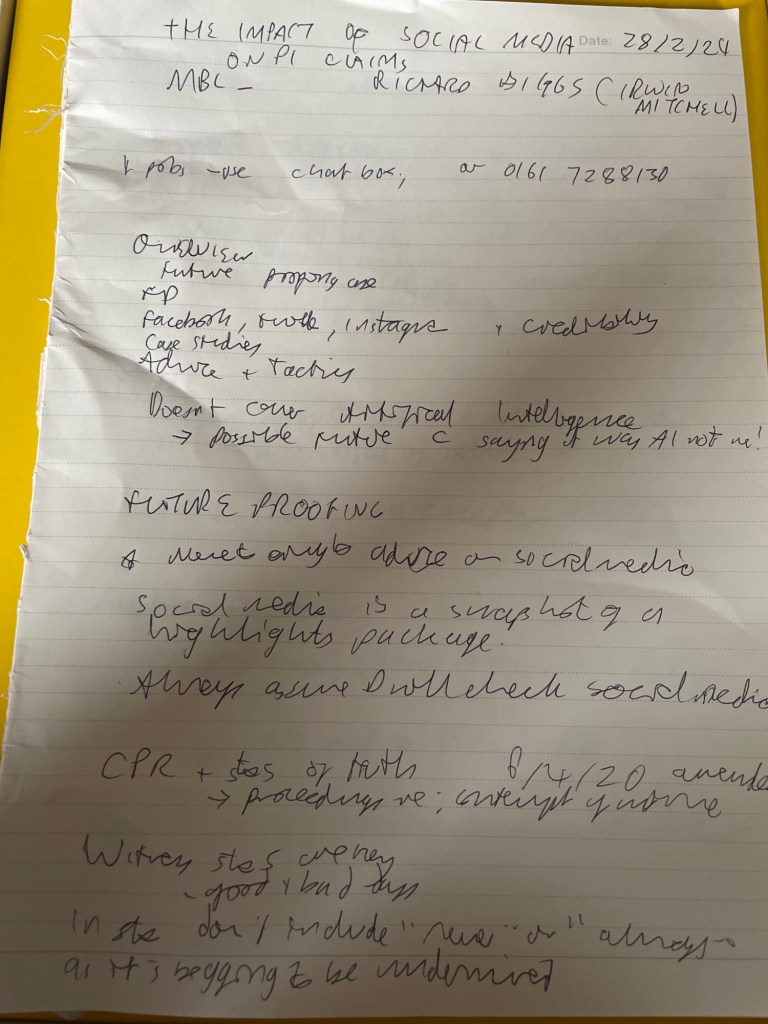 THE IMPACT OF SOCIAL MEDIA Date: 28/2/24
ON PI CLAIMS
MBL - RICHARD BIGGS (IRWIN
MITCHELL)
probs - use chat box, or 0161 7288130
Overview
Future proofing case
FP
Facebook, twitter, instagram + credibility
Case studies
Advice + Tactics
Doesn't cover Artificial Intelligence
→ possible future C saying it was AI not me!
FUTURE PROOFING
advise on social media
Social media is a snapshot of a
highlights package.
Always assume D will check social media
CPR + sts of truth 6/4/20 amended
→ proceedings re; contempt
Witness sts
- good + bad days
In sts don't include "never" or "always"
as it's begging to be undermined